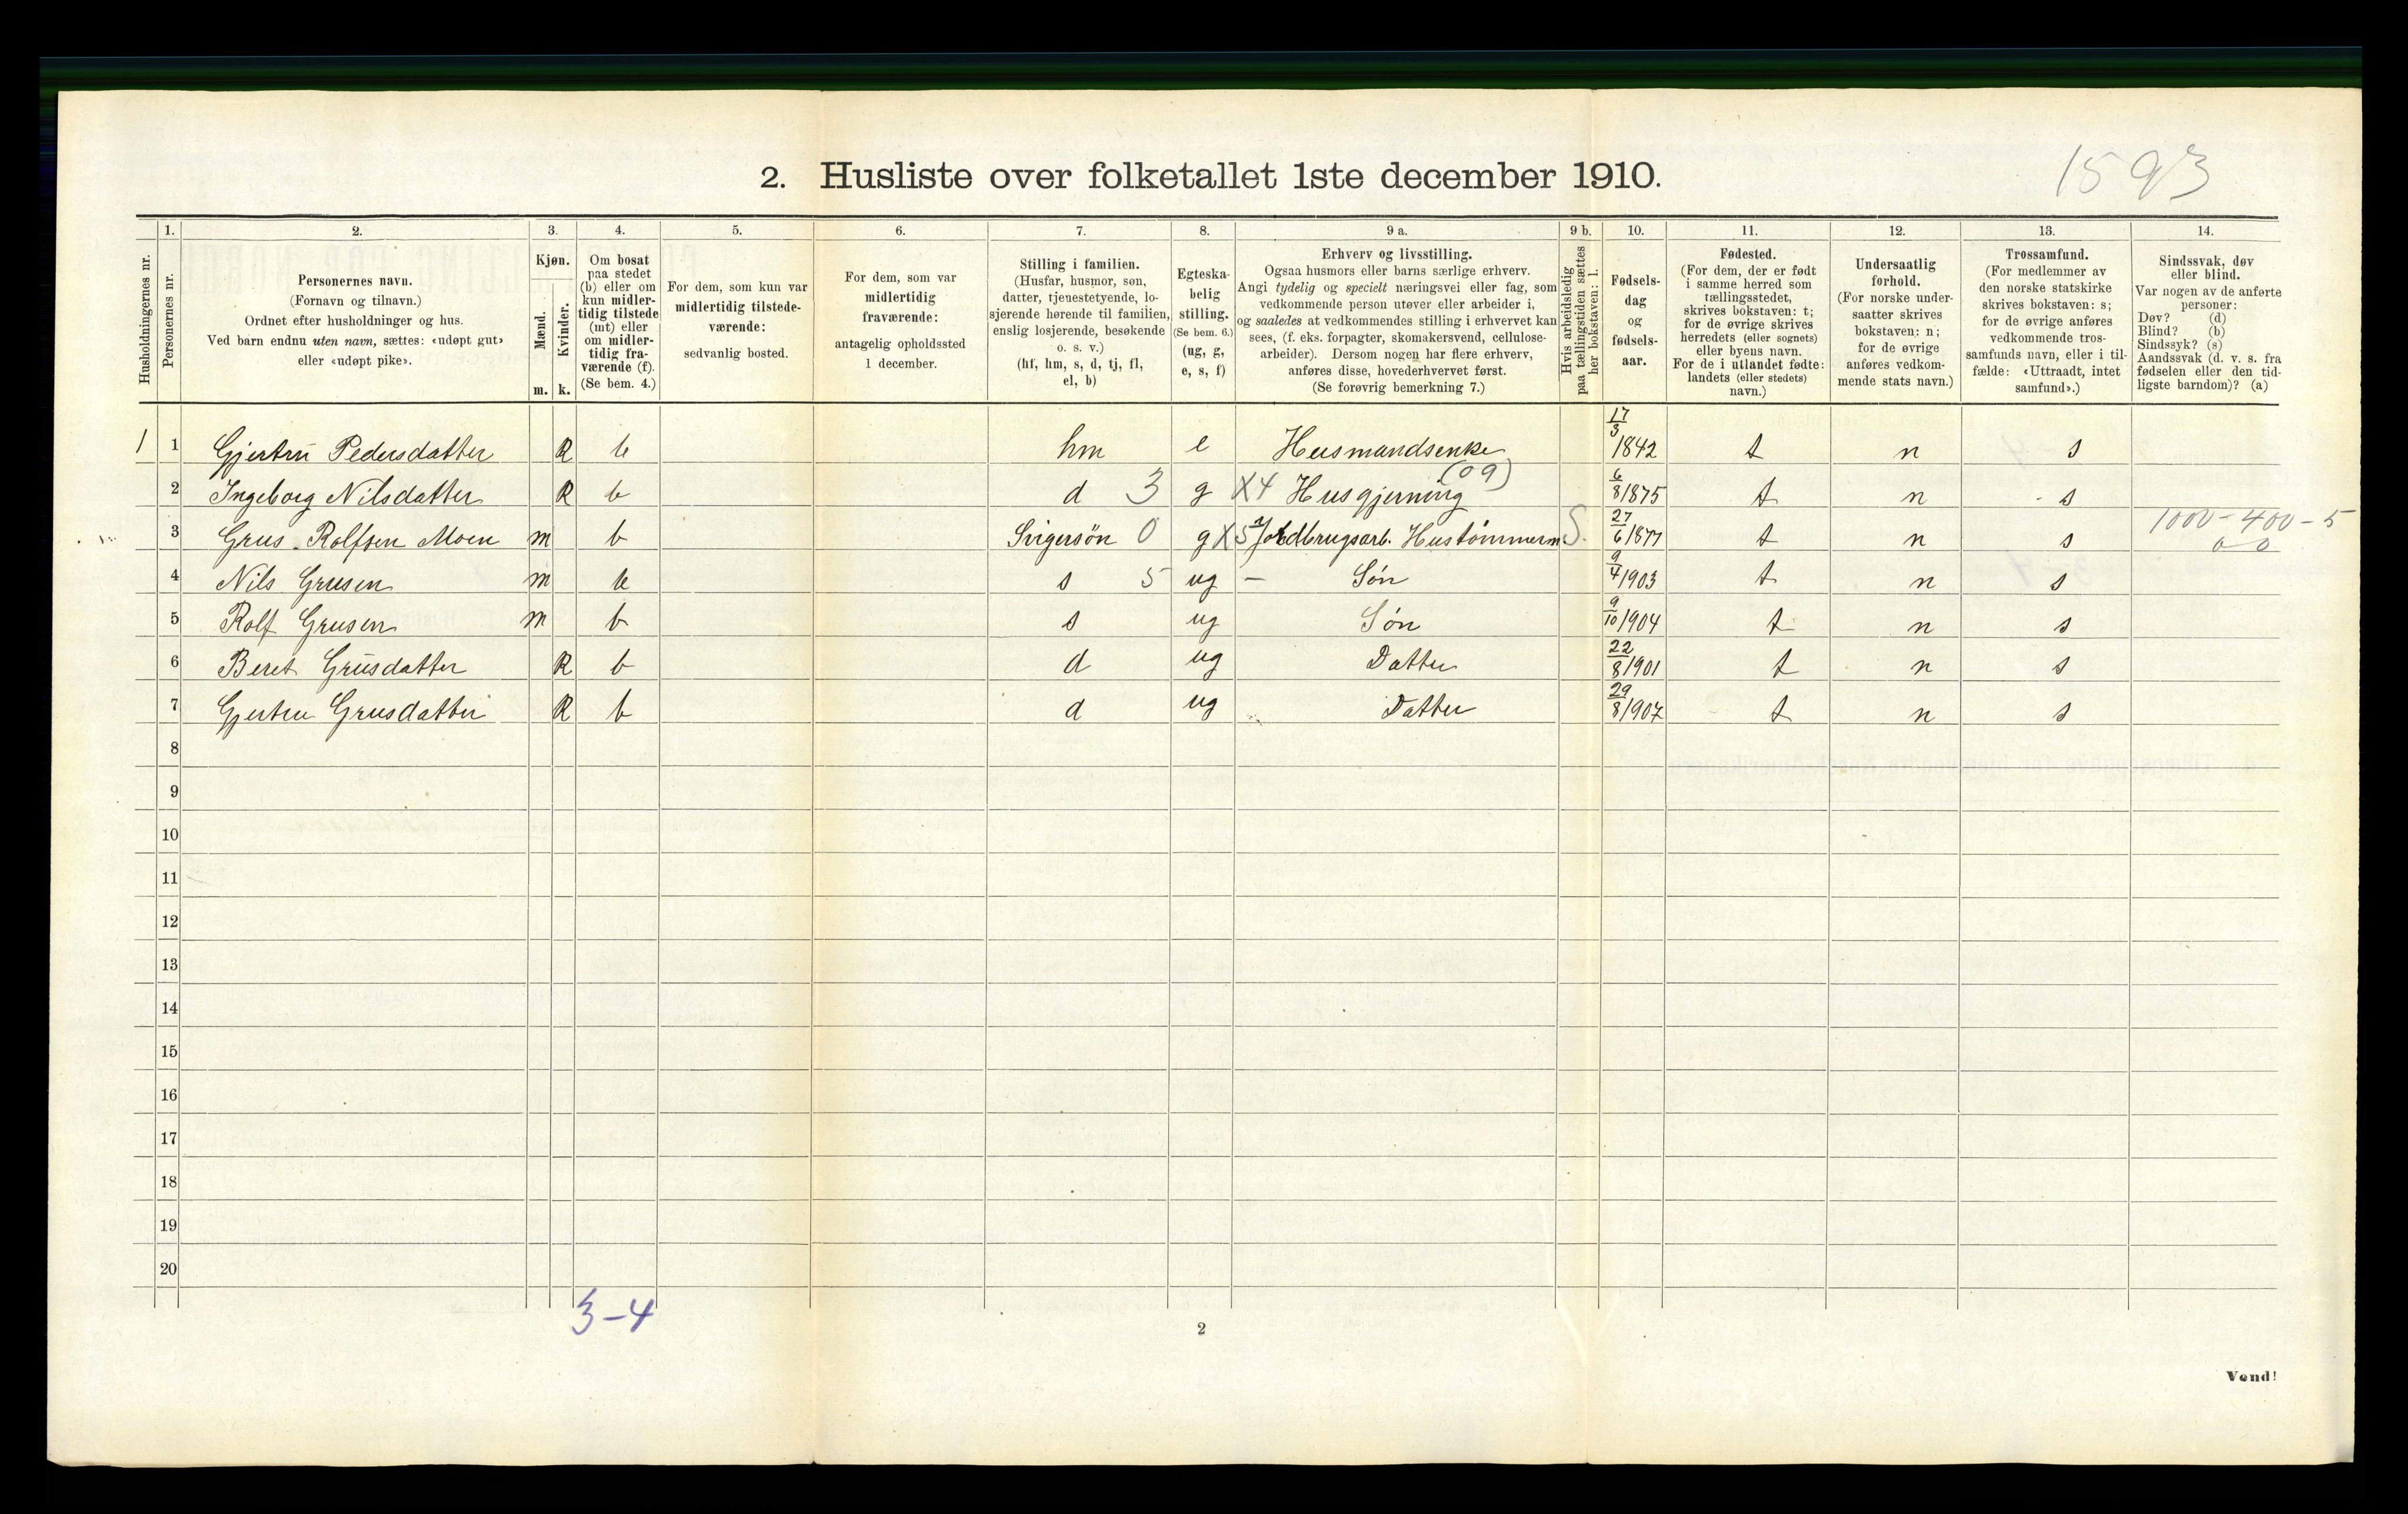 1593
2. Husliste over folketallet 1ste december 1910.
Husholdningernes nr.
1.
Personernes nr.
2.
Personernes navn.
(Fornavn og tilnavn.)
Ordnet efter husholdninger og hus.
Ved barn endnu uten navn, sættes: «udøpt gut»
eller «udøpt pike».
3.
Kjøn.
Mænd.
Kvinder.
m. k.
4.
Om bosat
paa stedet
(b) eller om
kun midler-
tidig tilstede
(mt) eller
om midler-
tidig fra-
værende (f).
(Se bem. 4.)
5.
For dem, som kun var
midlertidig tilstede-
værende:
sedvanlig bosted.
6.
For dem, som var
midlertidig
fraværende:
antagelig opholdssted
1 december.
7.
Stilling i familien.
(Husfar, husmor, søn,
datter, tjenestetyende, lo-
sjerende hørende til familien,
enslig losjerende, besøkende
o. s. v.)
(hf, hm, s, d, tj, fl,
el, b)
8.
Egteska-
belig
stilling.
(Se bem. 6.)
(ug, g,
e, s, f)
9 a.
Erhverv og livsstilling.
Ogsaa husmors eller barns særlige erhverv.
Angi tydelig og specielt næringsvei eller fag, som
vedkommende person utøver eller arbeider i,
og saaledes at vedkommendes stilling i erhvervet kan
sees, (f. eks. forpagter, skomakersvend, cellulose-
arbeider). Dersom nogen har flere erhverv,
anføres disse, hovederhvervet først.
(Se forøvrig bemerkning 7.)
9 b.
Hvis arbeidsledig
paa tællingstiden sættes
her bokstaven: l.
10.
Fødsels-
dag
og
fødsels-
aar.
11.
Fødested.
(For dem, der er født
i samme herred som
tællingsstedet,
skrives bokstaven: t;
for de øvrige skrives
herredets (eller sognets)
eller byens navn.
For de i utlandet fødte:
landets (eller stedets)
navn.)
12.
Undersaatlig
forhold.
(For norske under-
saatter skrives
bokstaven: n;
for de øvrige
anføres vedkom-
mende stats navn.)
13.
Trossamfund.
(For medlemmer av
den norske statskirke
skrives bokstaven: s;
for de øvrige anføres
vedkommende tros-
samfunds navn, eller i til-
fælde: «Uttraadt, intet
samfund».)
14.
Sindssvak, døv
eller blind.
Var nogen av de anførte
personer:
Døv? (d)
Blind? (b)
Sindssyk? (s)
Aandssvak (d. v. s. fra
fødselen eller den tid-
ligste barndom)? (a)
1 1 Gjertru Pedersdatter K b hm e Husmandsenke 17/3 1842 t n s
2 Ingeborg Nilsdatter K b d 3 g X4 Husgjerning (09) 6/8 1875 t n s
3 Grus Rolfsen Moen m b Svigersøn 0 g X5 Jordbrugsarb. Hustømmerm S. 27/6 1877 t n s 1000-400-5
0 0
4 Nils Grusen m b s 5 ug - Søn 9/4 1903 t n s
5 Rolf Grusen m b s ug Søn 9/10 1904 t n s
6 Beret Grusdatter K b d ug Datter 22/8 1901 t n s
7 Gjertru Grusdatter K b d ug Datter 29/8 1907 t n s
8
9
10
11
12
13
14
15
16
17
18
19
20
3-4
2
Vend!